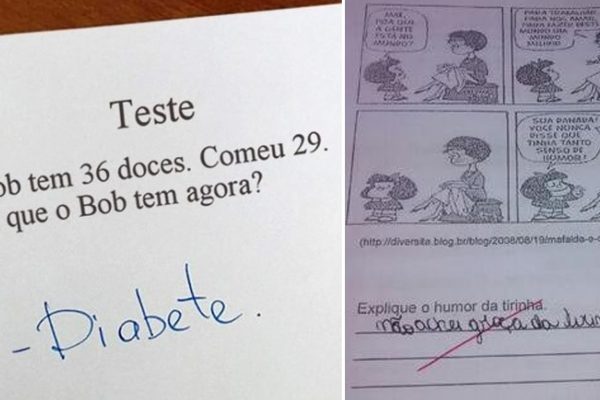 Teste
ob tem 36 doces. Comeu 29.
que o Bob tem agora?
- Diabete.
MÃE,
PRA QUE
A GENTE
ESTÁ NO
MUNDO?
PARA TRABALHAR,
PARA NOS AMAR,
PARA FAZER DESTE
MUNDO UM
MUNDO
MELHOR!
SUA DANADA!
VOCÊ NUNCA
DISSE QUE
TINHA TANTO
SENSO DE
HUMOR!
(http://diversita.blog.br/blog/2008/08/19/mafalda-e-o
Explique o humor da tirinha.
não achei graça da tirin